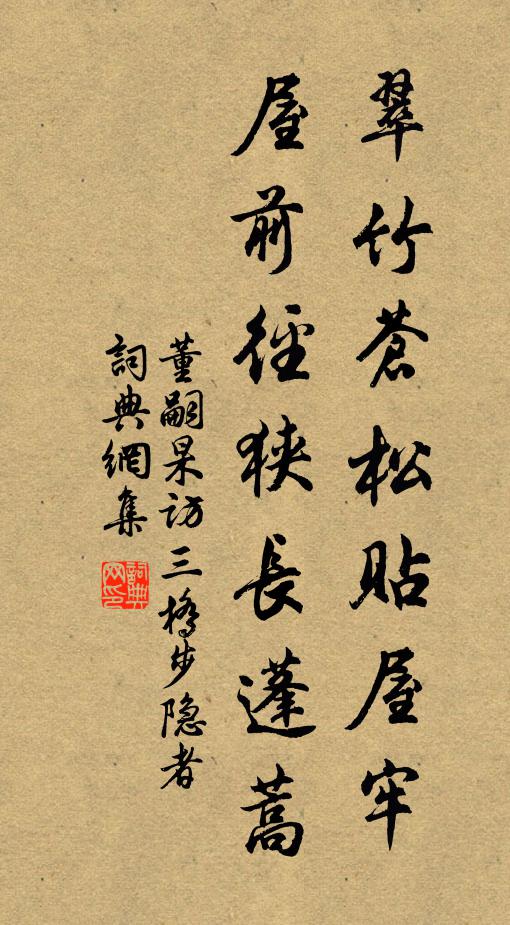 翠竹蒼松貼屋牢
屋前徑狹長蓬蒿
董嗣杲访三橋步隐者
詞典網集
詞典网印